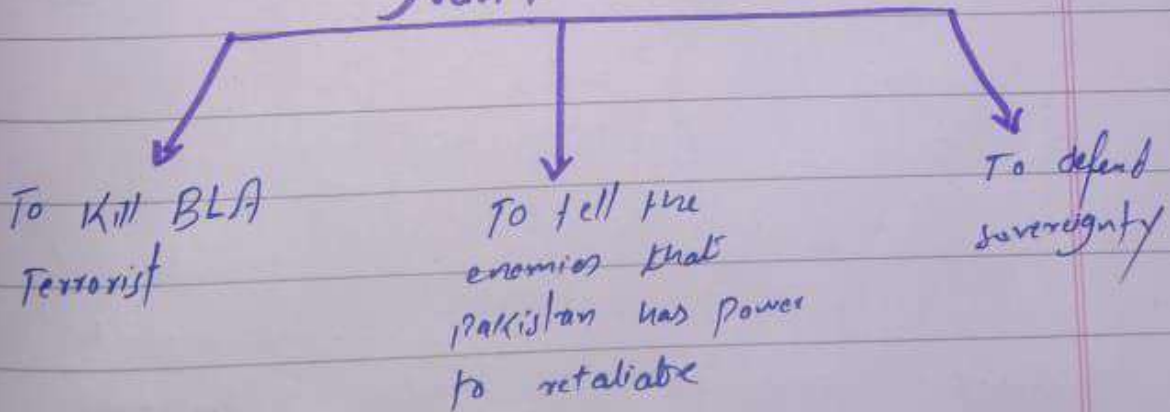 To Kill BLA
Terrorist
To tell the
enemies that
Pakistan has power
to retaliate
To defend
sovereignty